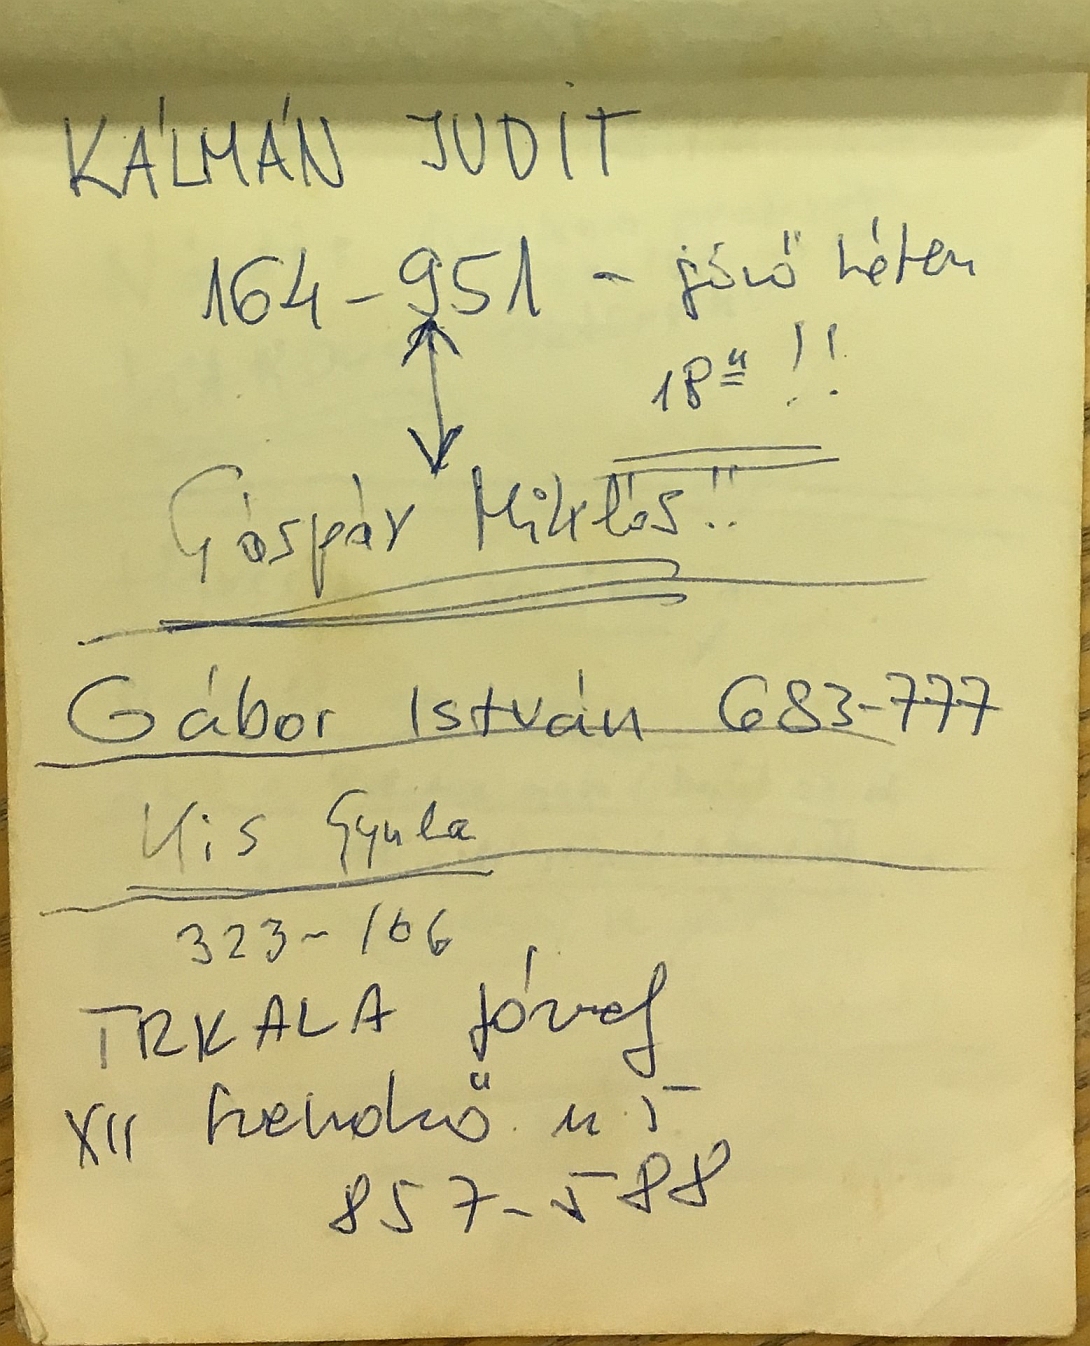 KÁLMÁN JUDIT
164-951 - jövő héten
18ʰ !!
Gáspár Miklós!!
Gábor István 683-777
Kis Gyula
323-166
TRKALA József
XII u 5
857-588